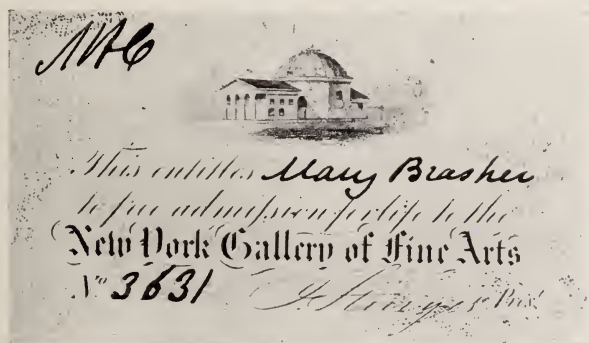 This entitles Mary Brasher
to free admission for life to the
New York Gallery of Fine Arts
No 3631 J Sturges Pres.